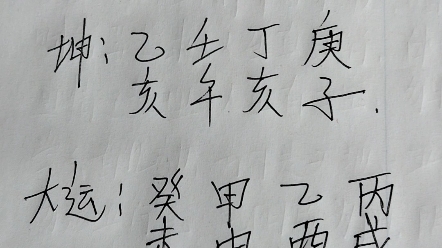 坤：乙壬丁庚
亥午亥子.
大运：癸甲乙丙
未申酉戌